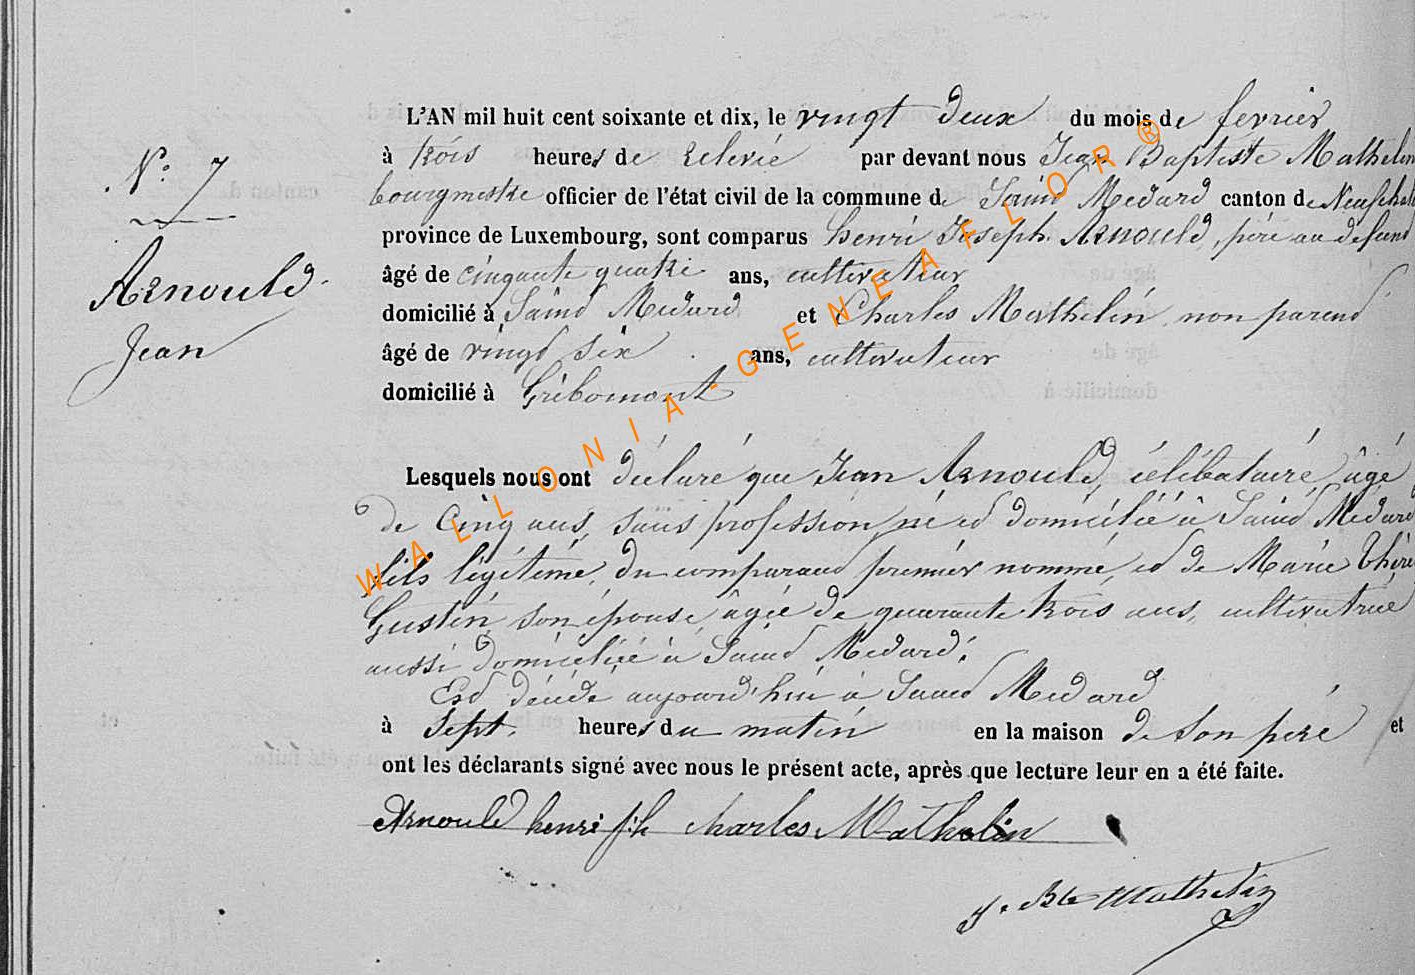 L'AN mil huit cent soixante et dix, le vingt deux du mois de fevrier
N.o 7
à trois heures de relevée par devant nous Jean Baptiste Mathelin
bourgmestre officier de l'état civil de la commune de Saind Medard canton de Neufchat
province de Luxembourg, sont comparus henri Joseph Arnould, père au defunt
Arnould
âgé de cinquante quatre ans, cultivateur
domicilié à Saind Medard et Charles Mathelin non parend
Jean
âgé de vingd six ans, cultivateur
domicilié à Gribomont
Lesquels nous ont déclaré que Jean Arnould, célibataire, âgé
de Cinq ans, sans profession, né ed domicilié à Saind Médard
fils légitime, du comparand premier nommé, ed de Marie Thérè
Gustin son épouse âgée de quarante trois ans, cultivatrice
aussi domiciliée à Saind Medard.
Esd décédé aujourd'hui à Saind Medard
à Sept. heures du matin en la maison de son père et
ont les déclarants signé avec nous le présent acte, après que lecture leur en a été faite.
Arnould henri jph charles Mathelin
J. Bte Mathelin
WALLONIA-GENEAFLOR®